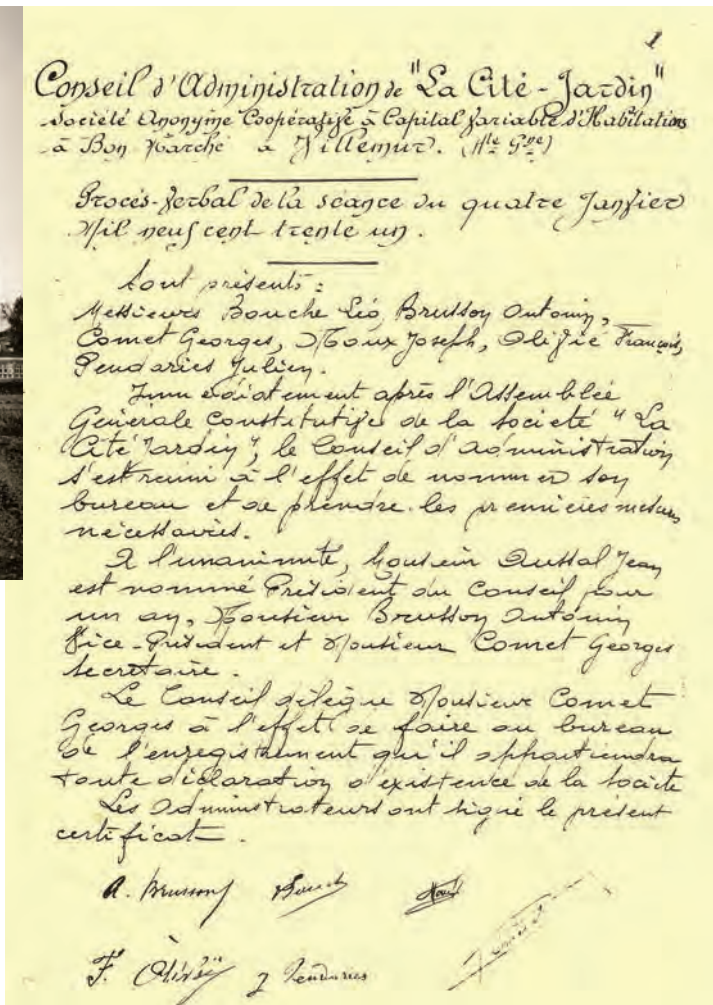 1
Conseil d'Administration de "La Cité-Jardin"
Société Anonyme Coopérative à Capital Variable d'Habitations
à Bon Marché à Villemur. (Hte Gne)
Procès-Verbal de la séance du quatre Janvier
Mil neuf cent trente un.
Sont présents :
Messieurs Bouche Léo, Brusson Antonin,
Comet Georges, Moux Joseph, Olivié François,
Pendaries Julien.
Immédiatement après l'Assemblée
Générale Constitutive de la Société "La
Cité Jardin", le Conseil d'administration
s'est réuni à l'effet de nommer son
bureau et de prendre les premières mesures
nécessaires.
A l'unanimité, Monsieur Aussal Jean
est nommé Président du Conseil pour
un an, Monsieur Brusson Antonin
Vice-Président et Monsieur Comet Georges
Secrétaire.
Le Conseil délègue Monsieur Comet
Georges à l'effet de faire au bureau
de l'enregistrement qu'il appartiendra
toute déclaration d'existence de la Société
Les Administrateurs ont signé le présent
certificat.
A. Brusson Bouche Moux
F. Olivié J Pendaries